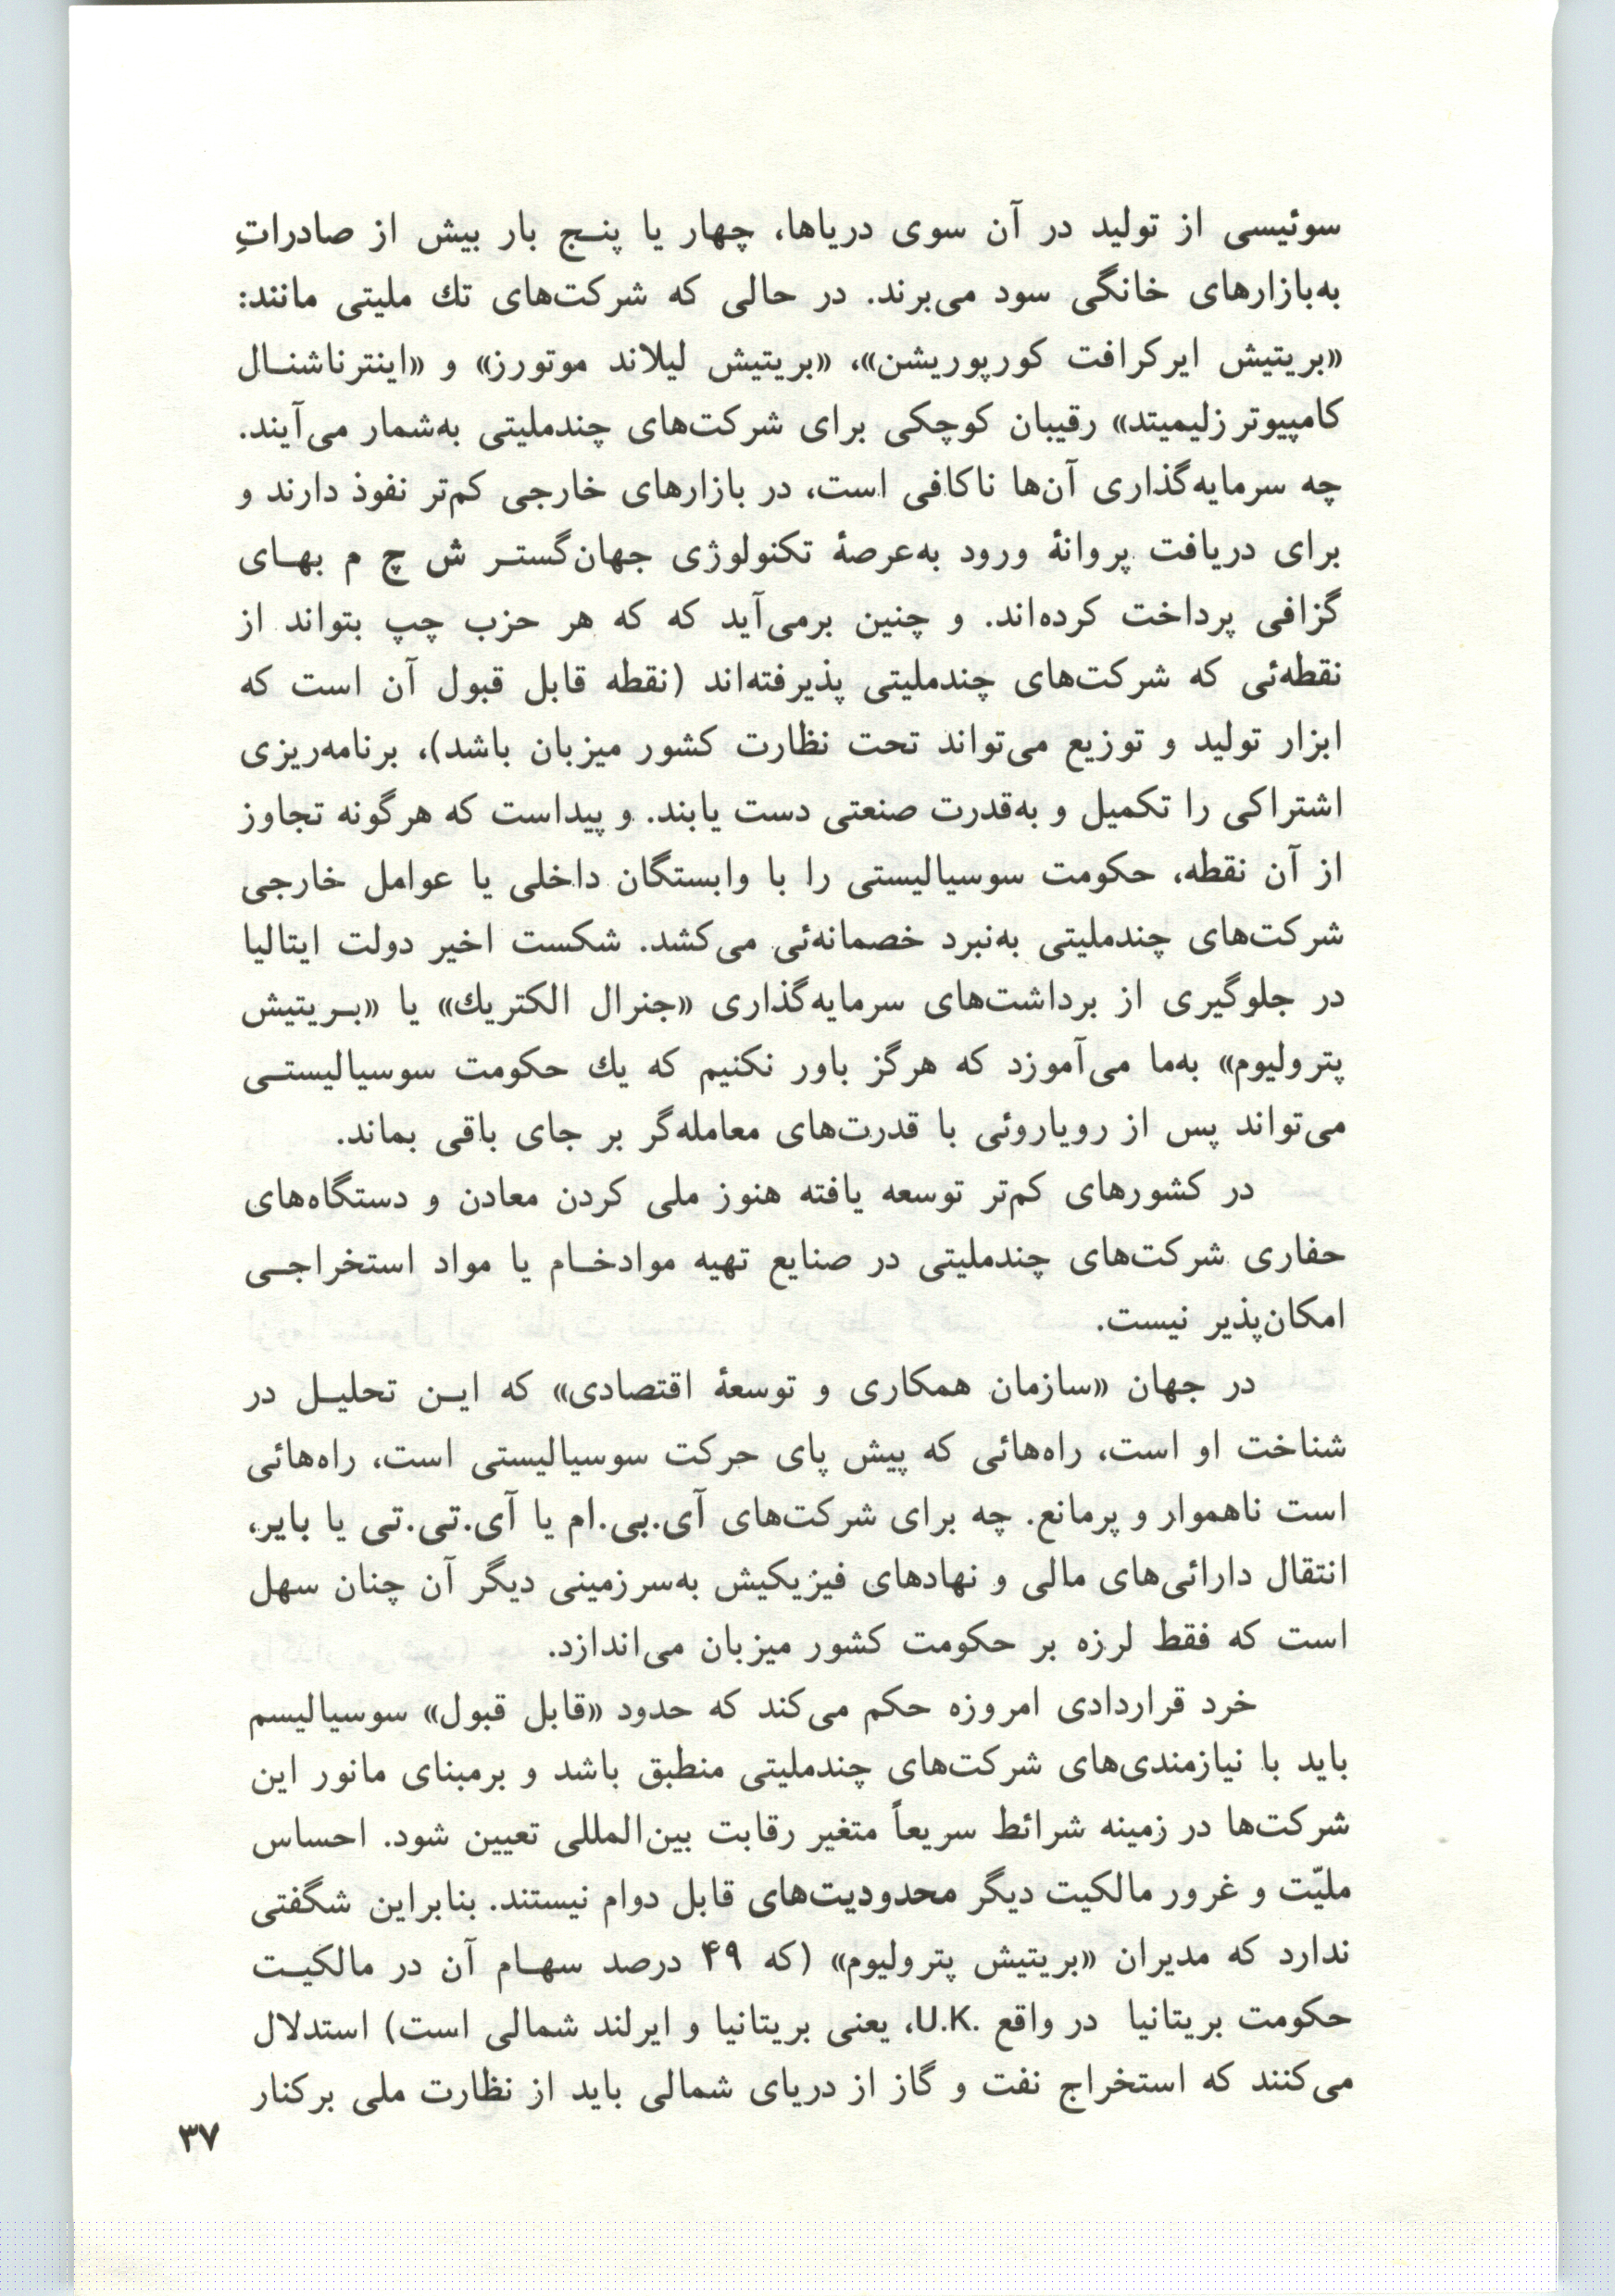 سوئیسی از تولید در آن سوی دریاها، چهار یا پنـج بار بیش از صادراتِ
به‌بازارهای خانگی سود می‌برند. در حالی که شرکت‌های تك ملیتی مانند:
«بریتیش ایرکرافت کورپوریشن»، «بریتیش لیلاند موتورز» و «اینترناشنـال
کامپیوتر زلیمیتد» رقیبان کوچکی برای شرکت‌های چندملیتی به‌شمار می‌آیند.
چه سرمایه‌گذاری آن‌ها ناکافی است، در بازارهای خارجی کم‌تر نفوذ دارند و
برای دریافت پروانهٔ ورود به‌عرصهٔ تکنولوژی جهان‌گستـر ش چ م بهـای
گزافی پرداخت کرده‌اند. و چنین برمی‌آید که که هر حزب چپ بتواند از
نقطه‌ئی که شرکت‌های چندملیتی پذیرفته‌اند (نقطه قابل قبول آن است که
ابزار تولید و توزیع می‌تواند تحت نظارت کشور میزبان باشد)، برنامه‌ریزی
اشتراکی را تکمیل و به‌قدرت صنعتی دست یابند. و پیداست که هرگونه تجاوز
از آن نقطه، حکومت سوسیالیستی را با وابستگان داخلی یا عوامل خارجی
شرکت‌های چندملیتی به‌نبرد خصمانه‌ئی می‌کشد. شکست اخیر دولت ایتالیا
در جلوگیری از برداشت‌های سرمایه‌گذاری «جنرال الکتریك» یا «بـریتیش
پترولیوم» به‌ما می‌آموزد که هرگز باور نکنیم که یك حکومت سوسیالیستـی
می‌تواند پس از رویاروئی با قدرت‌های معامله‌گر بر جای باقی بماند.
در کشورهای کم‌تر توسعه یافته هنوز ملی کردن معادن و دستگاه‌های
حفاری شرکت‌های چندملیتی در صنایع تهیه موادخـام یا مواد استخراجـی
امکان‌پذیر نیست.
در جهان «سازمان همکاری و توسعهٔ اقتصادی» که ایـن تحلیـل در
شناخت او است، راه‌هائی که پیش پای حرکت سوسیالیستی است، راه‌هائی
است ناهموار و پرمانع. چه برای شرکت‌های آی.بی.ام یا آی.تی.تی یا بایر،
انتقال دارائی‌های مالی و نهادهای فیزیکیش به‌سرزمینی دیگر آن چنان سهل
است که فقط لرزه بر حکومت کشور میزبان می‌اندازد.
خرد قراردادی امروزه حکم می‌کند که حدود «قابل قبول» سوسیالیسم
باید با نیازمندی‌های شرکت‌های چندملیتی منطبق باشد و برمبنای مانور این
شرکت‌ها در زمینه شرائط سریعاً متغیر رقابت بین‌المللی تعیین شود. احساس
ملیّت و غرور مالکیت دیگر محدودیت‌های قابل دوام نیستند. بنابراین شگفتی
ندارد که مدیران «بریتیش پترولیوم» (که ۴۹ درصد سهـام آن در مالکیـت
حکومت بریتانیا در واقع .U.K، یعنی بریتانیا و ایرلند شمالی است) استدلال
می‌کنند که استخراج نفت و گاز از دریای شمالی باید از نظارت ملی برکنار
۳۷